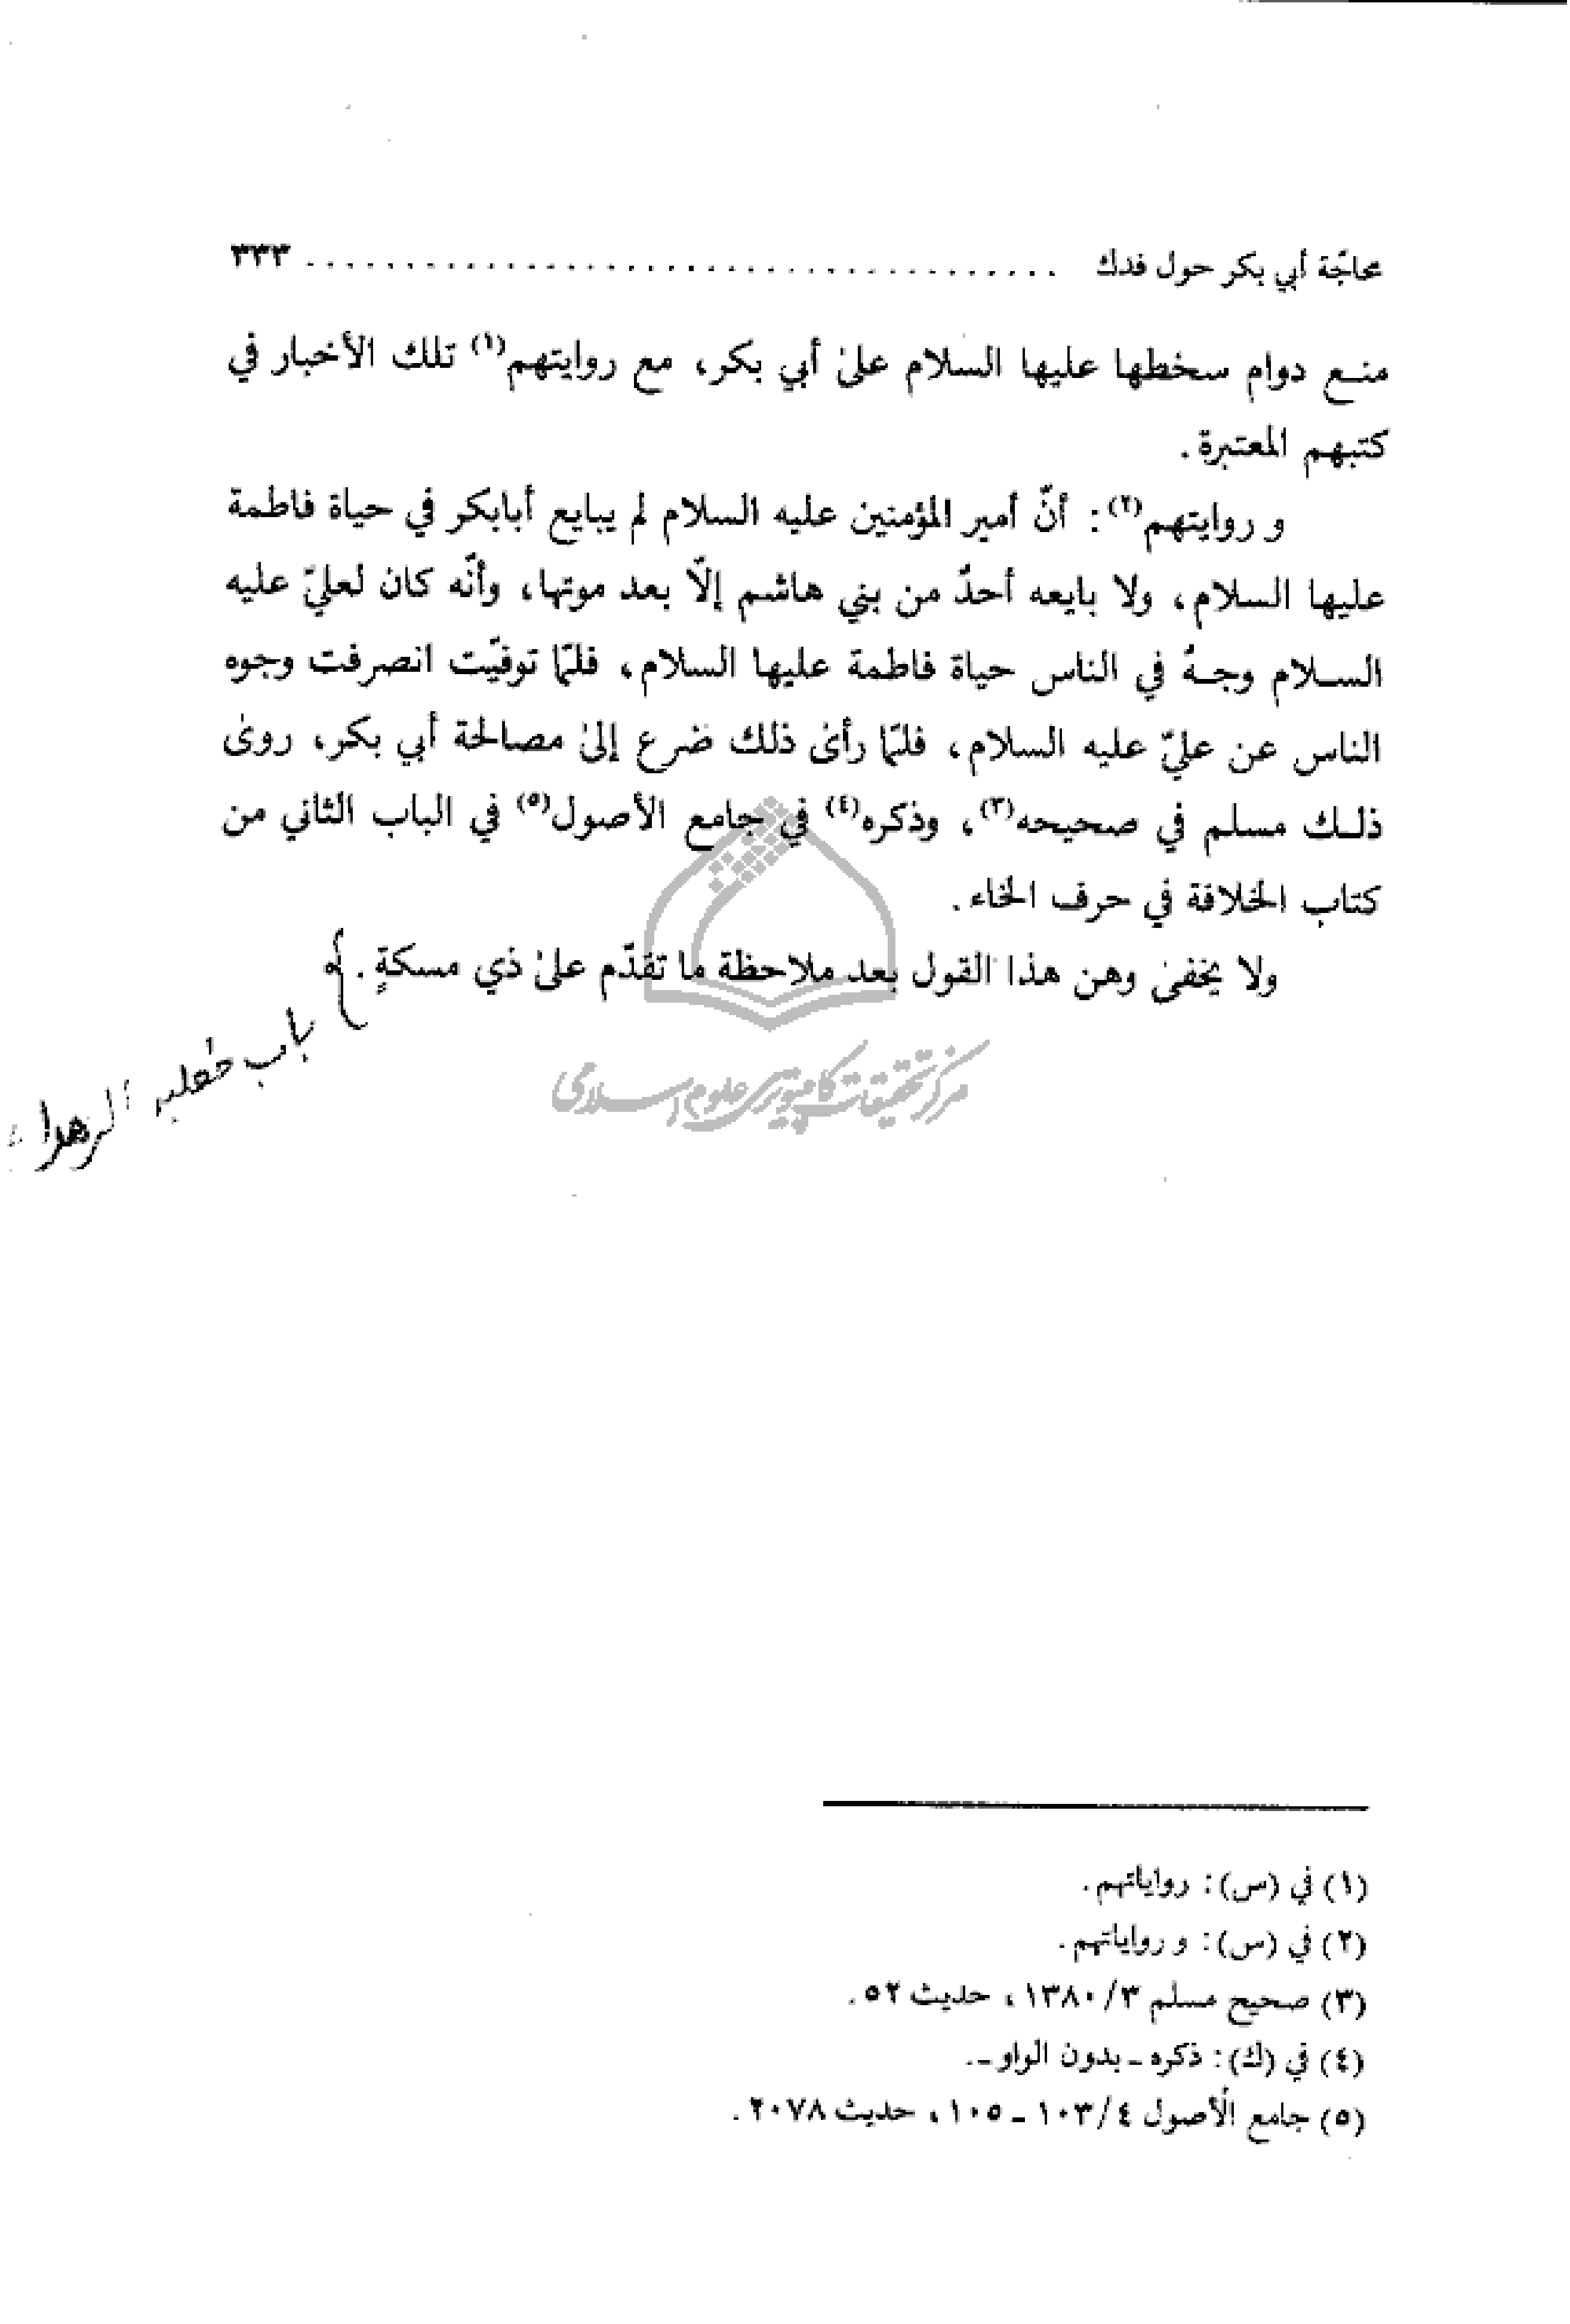 محاجّة أبي بكر حول فدك ...................................... ٣٣٣
منـع دوام سخطها عليها السلام علىٰ أبي بكر، مع روايتهم(١) تلك الأخبار في
كتبهم المعتبرة.
و روايتهم(٢): أنّ أمير المؤمنين عليه السلام لم يبايع أبابكر في حياة فاطمة
عليها السلام، ولا بايعه أحدٌ من بني هاشم إلّا بعد موتها، وأنّه كان لعليّ عليه
السـلام وجـهٌ في الناس حياة فاطمة عليها السلام، فلمّا توفيّت انصرفت وجوه
الناس عن عليّ عليه السلام، فلمّا رأىٰ ذلك ضرع إلىٰ مصالحة أبي بكر، روىٰ
ذلـك مسلم في صحيحه(٣)، وذكره(٤) في جامع الأصول(٥) في الباب الثاني من
كتاب الخلافة في حرف الخاء.
ولا يخفىٰ وهن هذا القول بعد ملاحظة ما تقدّم علىٰ ذي مسكةٍ.
باب خطبه الزهراء
مركز تحقيقات كامپيوترى علوم اسلامى
(١) في (س): رواياتهم.
(٢) في (س): و رواياتهم.
(٣) صحيح مسلم ٣/ ١٣٨٠، حديث ٥٢.
(٤) في (ك): ذكره ـ بدون الواو ـ.
(٥) جامع الأصول ٤/ ١٠٣ ـ ١٠٥، حديث ٢٠٧٨.